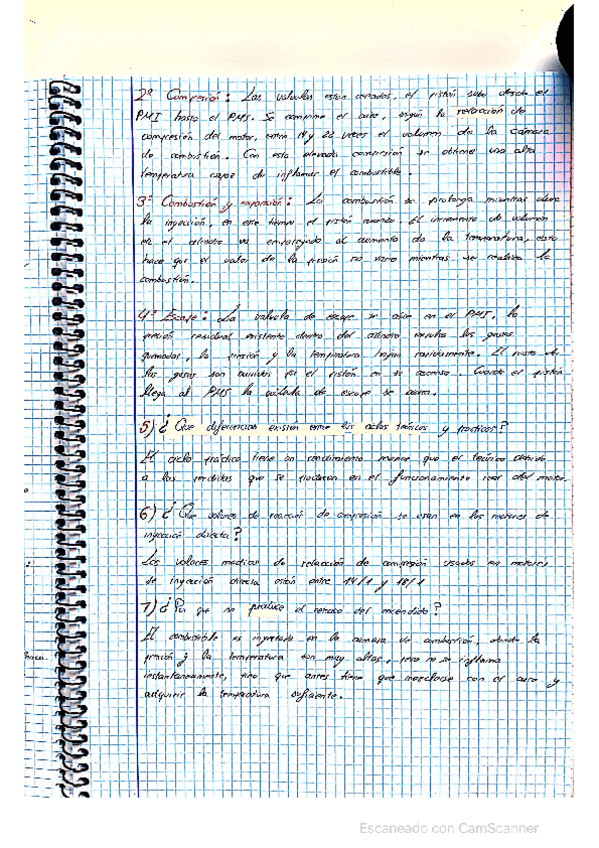 2º Compresión: Las valvulas estan cerradas, el pistón sube desde el
PMI hasta el PMS. Se comprime el aire, según la relacción de
compresión del motor, entre 14 y 22 veces el volumen de la cámara
de combustión. Con esta elevada compresión se obtiene una alta
temperatura capaz de inflamar el combustible.
3º Combustión y expansión: La combustión se prolonga mientras dura
la inyección, en este tiempo el pistón avanza. El incremento de volumen
en el cilindro va emparejado al aumento de la temperatura, esto
hace que el valor de la presión no varie mientras se realiza la
combustión.
4º Escape: La valvula de escape se abre en el PMI, la
presión residual existente dentro del cilindro expulsa los gases
quemados, la presión y la temperatura bajan rapidamente. El resto de
los gases son barridos por el pistón en su ascenso. Cuando el pistón
llega al PMS la válvula de escape se cierra.
5) ¿Que diferencias existen entre los ciclos teóricos y practicos?
El ciclo práctico tiene un rendimiento menor que el teórico debido
a las perdidas que se producen en el funcionamiento real del motor.
6) ¿Que valores de relacción de compresión se usan en los motores de
inyección directa?
Los valores medios de relacción de compresión usados en motores
de inyección directa están entre 14/1 y 18/1
7) ¿Por que se produce el retraso del encendido?
El combustible es inyectado en la camara de combustión, donde la
presión y la temperatura son muy altas, pero no se inflama
instantaneamente, sino que antes tiene que mezclarse con el aire y
adquirir la temperatura suficiente.
Escaneado con CamScanner